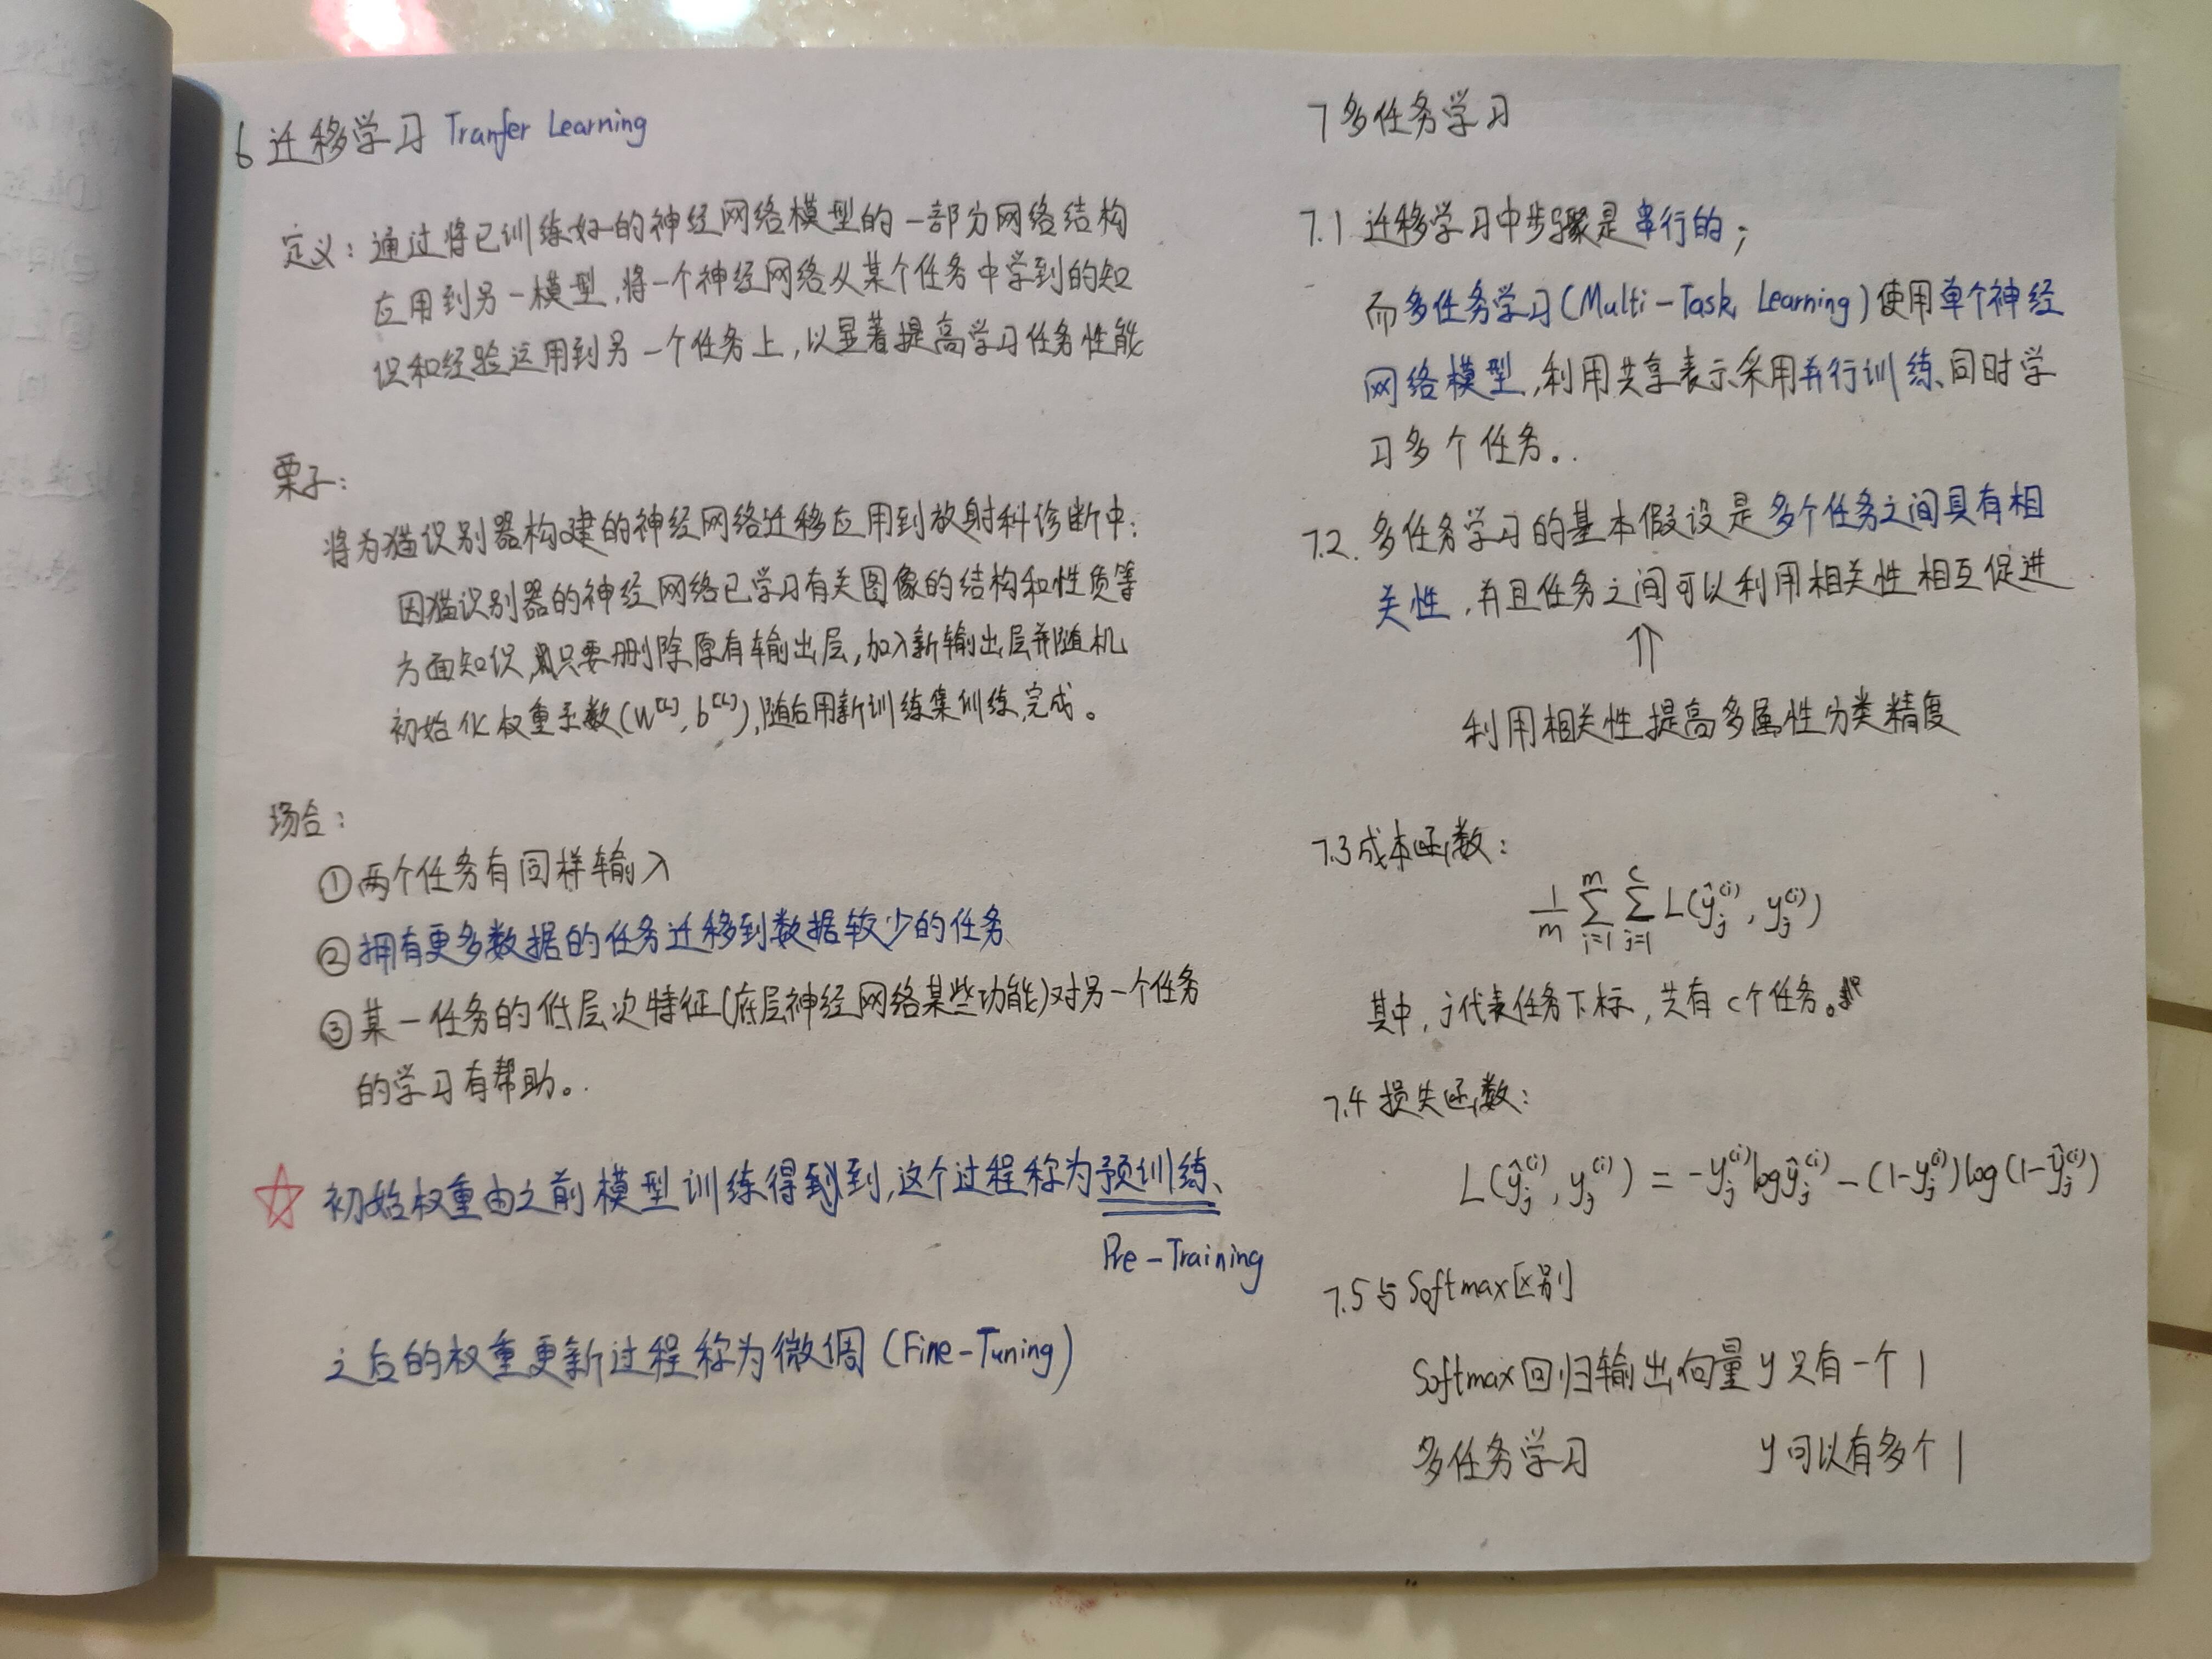 6 迁移学习 Tranfer Learning
定义：通过将已训练好的神经网络模型的一部分网络结构
应用到另一模型，将一个神经网络从某个任务中学到的知
识和经验运用到另一个任务上，以显著提高学习任务性能
栗子：
将为猫识别器构建的神经网络迁移应用到放射科诊断中：
因猫识别器的神经网络已学习有关图像的结构和性质等
方面知识，只要删除原有输出层，加入新输出层并随机
初始化权重系数(W^[L], b^[L])，随后用新训练集训练，完成。
场合：
①两个任务有同样输入
②拥有更多数据的任务迁移到数据较少的任务
③某一任务的低层次特征(底层神经网络某些功能)对另一个任务
的学习有帮助。
☆ 初始权重由之前模型训练得到，这个过程称为预训练、
Pre-Training
之后的权重更新过程称为微调 (Fine-Tuning)
7 多任务学习
7.1 迁移学习中步骤是串行的；
而多任务学习(Multi-Task Learning)使用单个神经
网络模型，利用共享表示采用并行训练、同时学
习多个任务。
7.2. 多任务学习的基本假设是多个任务之间具有相
关性，并且任务之间可以利用相关性相互促进
⇑
利用相关性，提高多属性分类精度
7.3 成本函数：
1/m ∑_{i=1}^{m} ∑_{j=1}^{c} L(ŷ_j^(i), y_j^(i))
其中，j代表任务下标，共有c个任务。
7.4 损失函数：
L(ŷ_j^(i), y_j^(i)) = -y_j^(i) log ŷ_j^(i) - (1-y_j^(i)) log (1-ŷ_j^(i))
7.5 与Softmax区别
Softmax回归输出向量y只有一个1
多任务学习 y可以有多个1